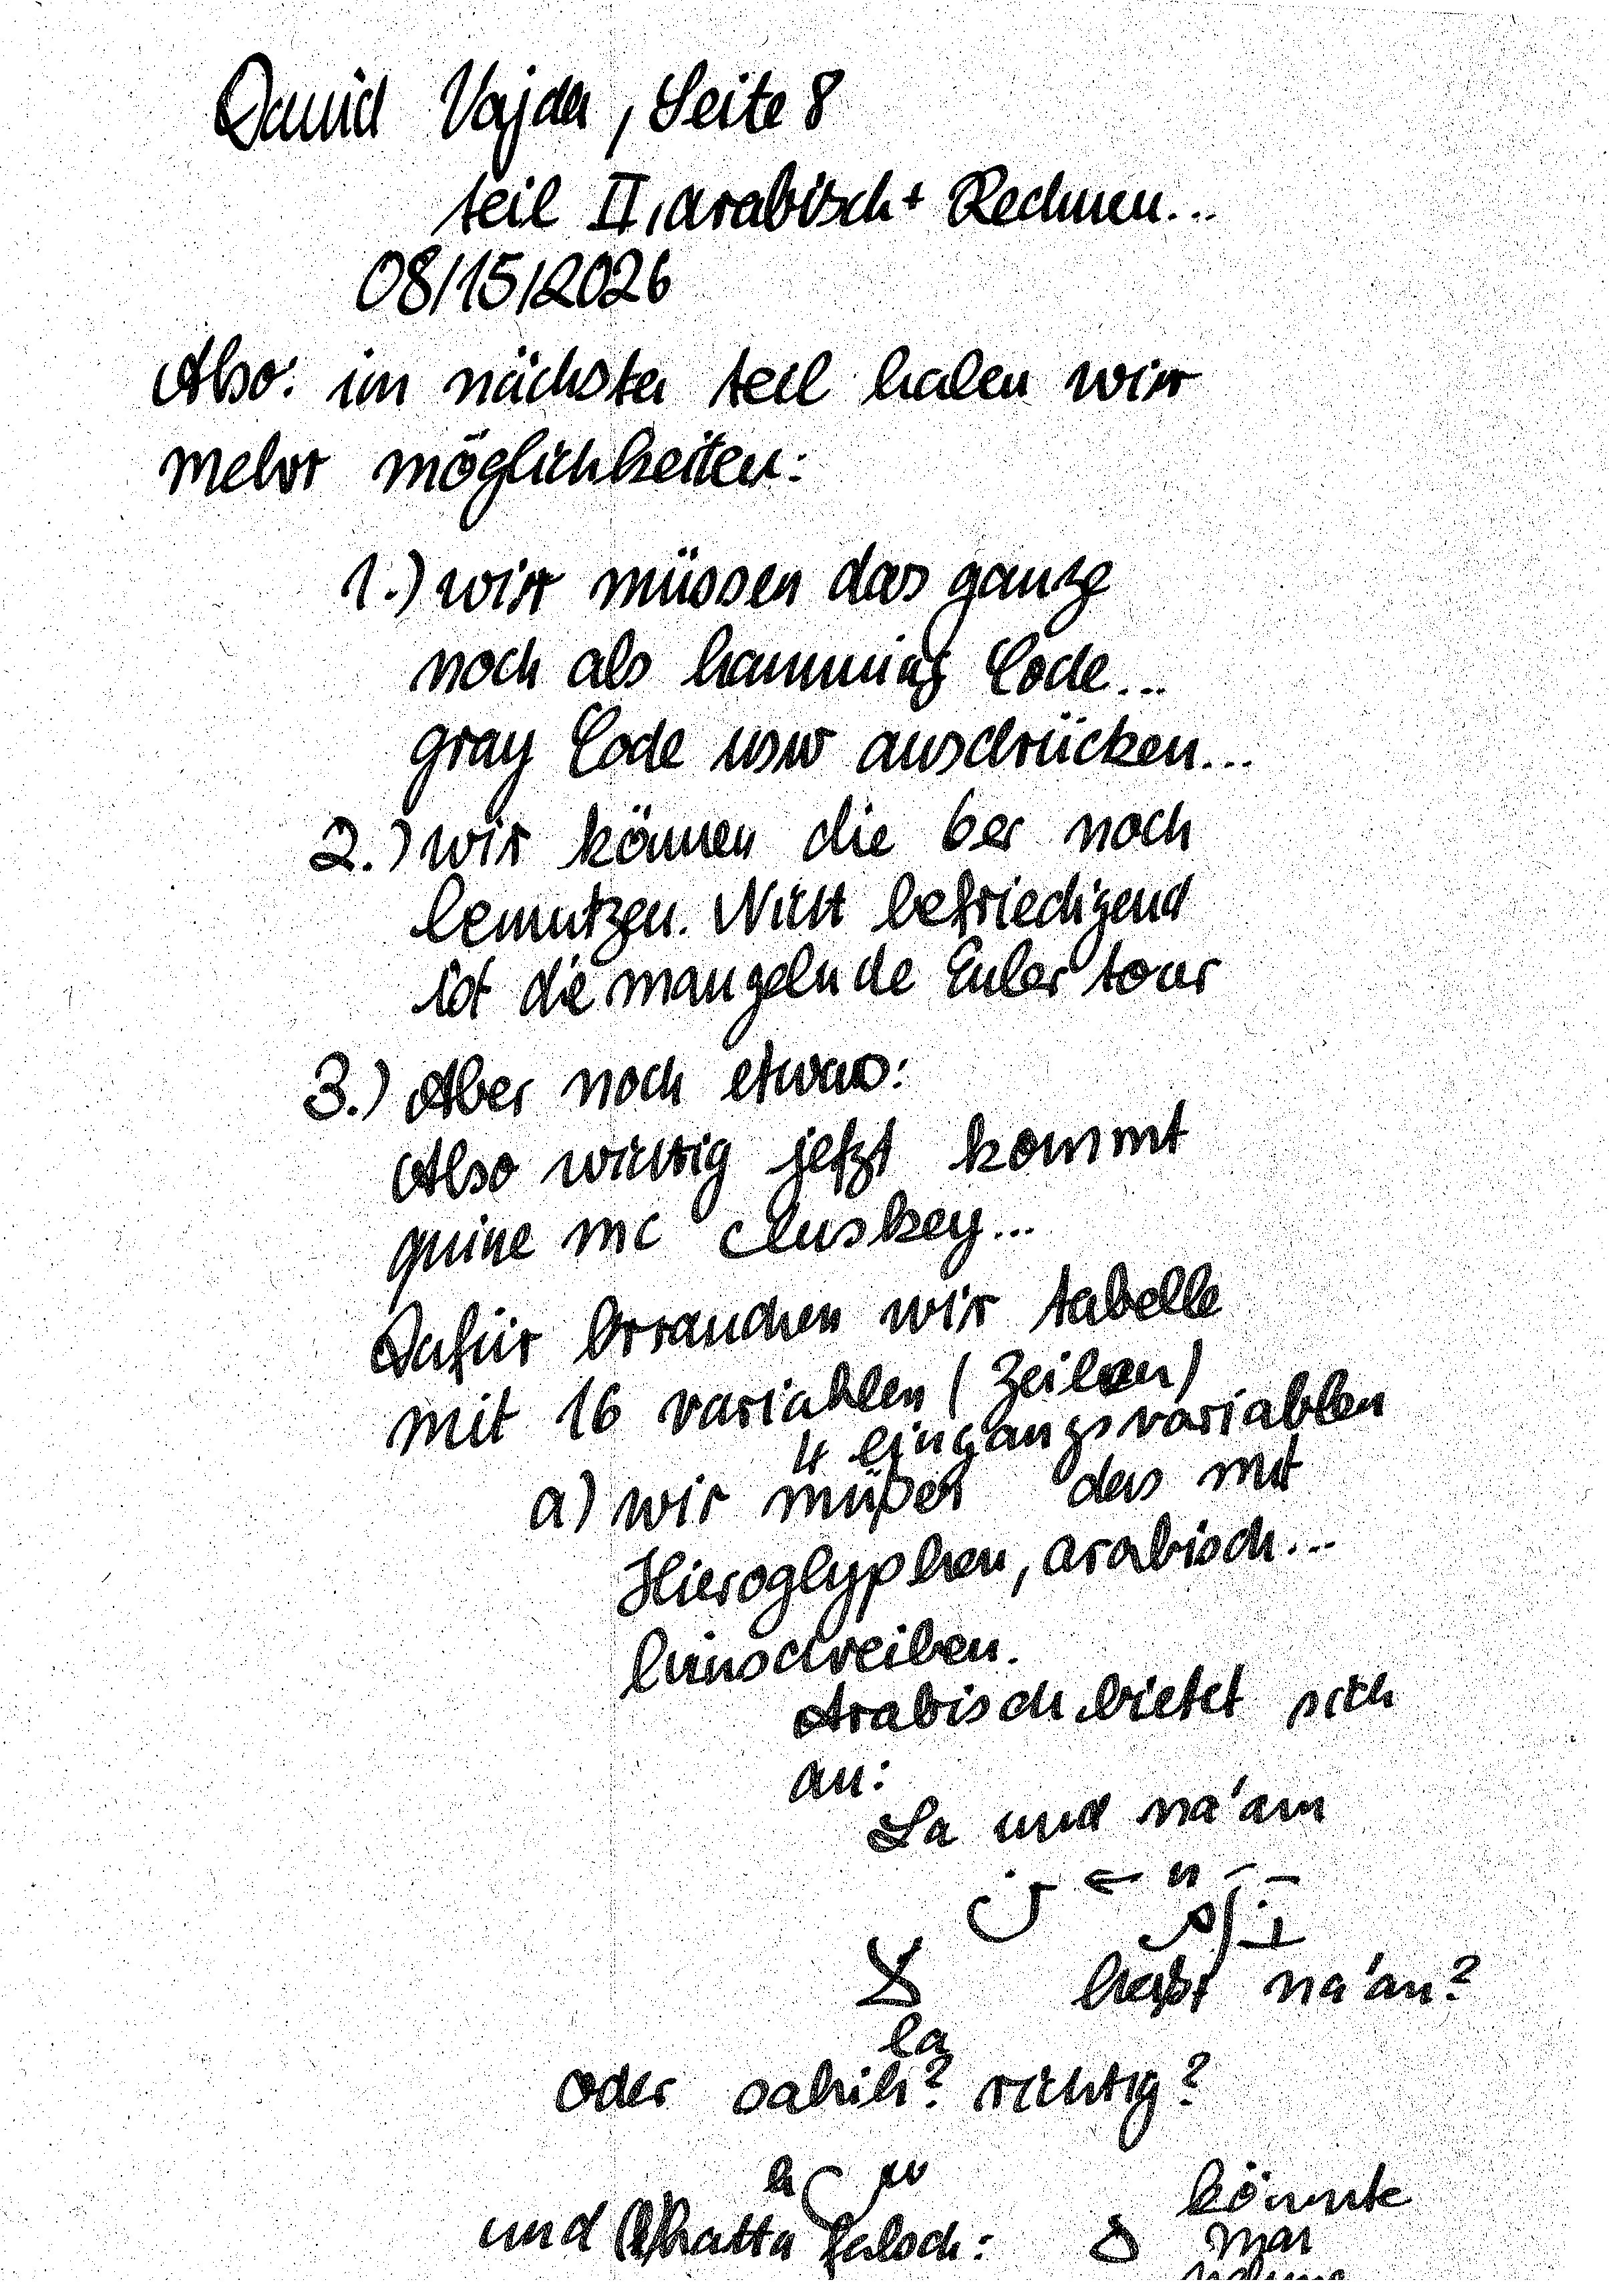 David Vajda, Seite 8
teil II, arabisch + Rechnen...
08/15/2026
Also: im nächsten teil haben wir
mehr möglichkeiten:
1.) wir müssen das ganze
noch als hamming Code...
gray Code usw ausdrücken...
2.) wir können die 6er noch
benutzen. Nicht befriedigend
ist die mangelnde Euler tour
3.) Aber noch etwas:
Also wichtig jetzt kommt
quine mc cluskey...
Dafür brauchen wir tabelle
mit 16 variablen (Zeilen)
4 eingangsvariablen
a) wir müßen das mit
Hieroglyphen, arabisch...
hinschreiben.
Arabisch bietet sich
an:
La und na'am
ن ← n
لا heißt na'an?
la
oder sahih? richtig?
und khatta falsch: könnte
man